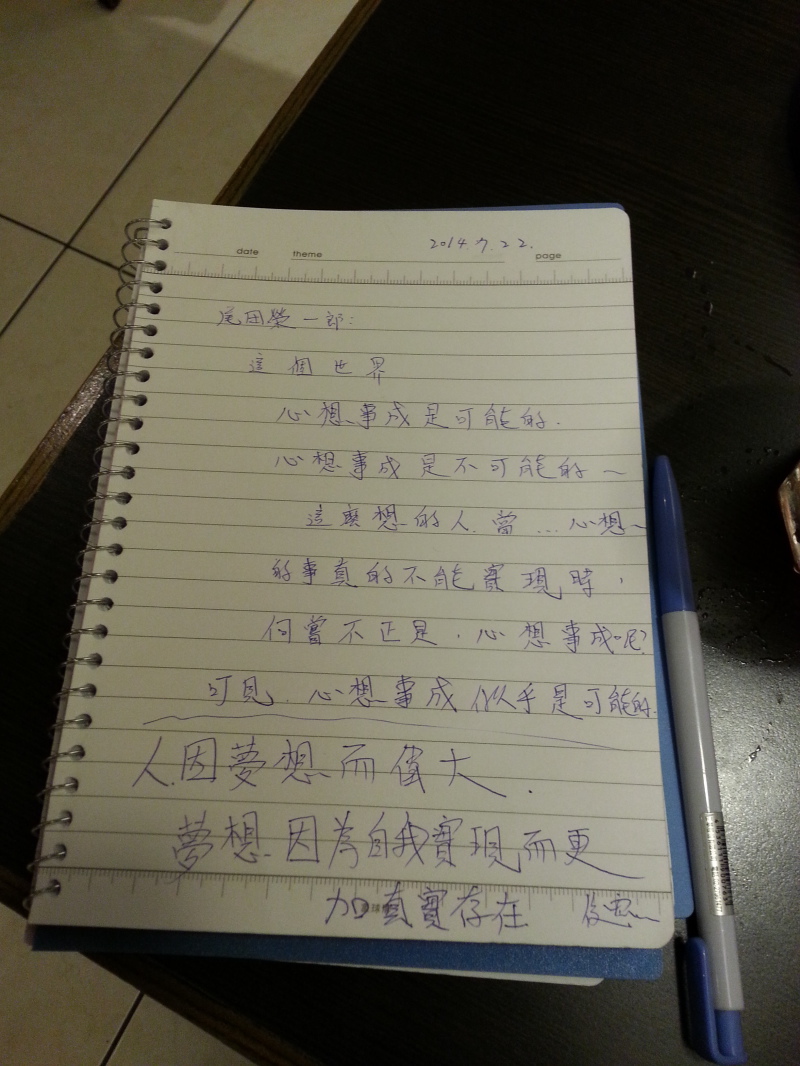 date theme 2014.7.22. page
尾田榮一郎:
這個世界
心想事成是可能的.
心想事成是不可能的~
這麼想的人.當...心想~
的事真的不能實現時,
何嘗不正是.心想事成呢?
可見.心想事成似乎是可能的.
人因夢想而偉大.
夢想因為自我實現而更
加真實存在